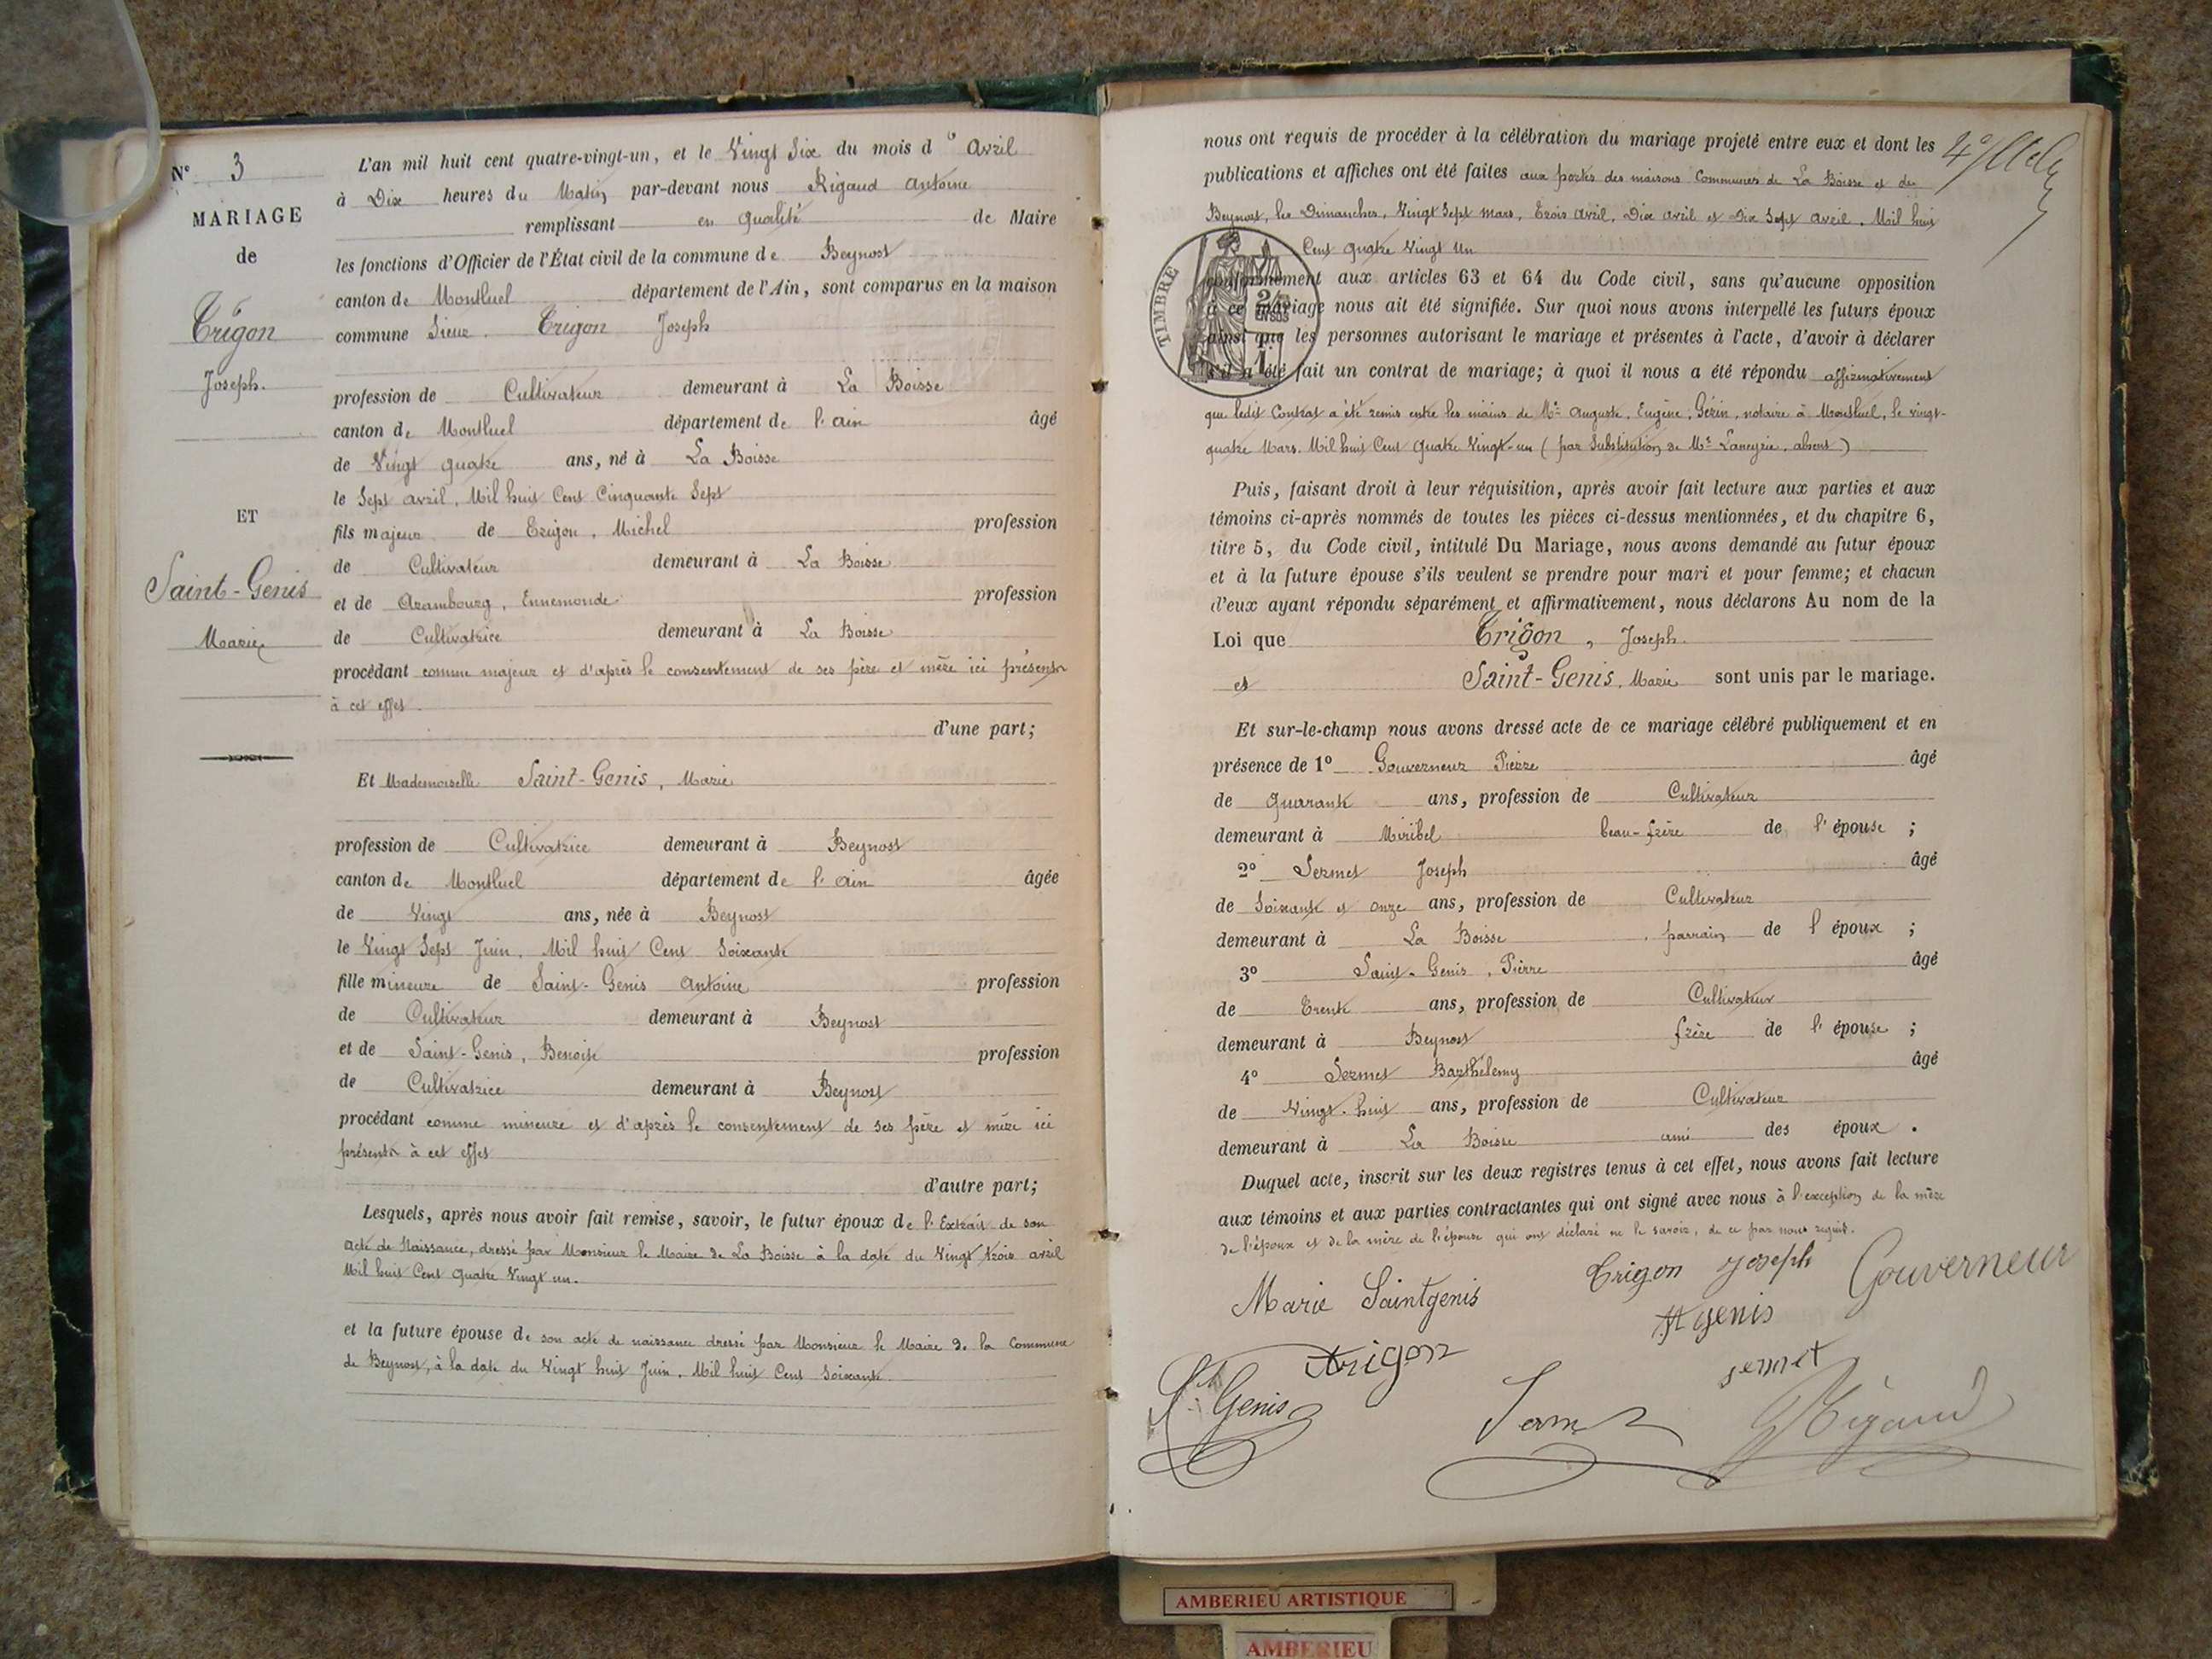 N° 3
MARIAGE
de
Trigon
Joseph.
ET
Saint-Genis
Marie
L'an mil huit cent quatre-vingt-un, et le Vingt Six du mois d' Avril
à Dix heures du Matin par-devant nous Rigaud Antoine
remplissant en qualité de Maire
les fonctions d'Officier de l'État civil de la commune de Beynost
canton de Montluel département de l'Ain, sont comparus en la maison
commune Sieur. Trigon Joseph
profession de Cultivateur demeurant à La Boisse
canton de Montluel département de l'ain âgé
de Vingt quatre ans, né à La Boisse
le Sept avril, Mil huit Cent Cinquante Sept
fils majeur de Trigon, Michel profession
de Cultivateur demeurant à La Boisse
et de Arambourg, Ennemonde profession
de Cultivatrice demeurant à La Boisse
procédant comme majeur et d'après le consentement de ses père et mère ici présents
à cet effet.
d'une part;
Et Mademoiselle Saint-Genis, Marie
profession de Cultivatrice demeurant à Beynost
canton de Montluel département de l'ain âgée
de Vingt ans, née à Beynost
le Vingt Sept Juin, Mil huit Cent Soixante
fille mineure de Saint-Genis Antoine profession
de Cultivateur demeurant à Beynost
et de Saint-Genis, Benoite profession
de Cultivatrice demeurant à Beynost
procédant comme mineure et d'après le consentement de ses père et mère ici
présents à cet effet
d'autre part;
Lesquels, après nous avoir fait remise, savoir, le futur époux de l'Extrait de son
acte de Naissance, dressé par Monsieur le Maire de La Boisse à la date du Vingt trois avril
Mil huit Cent quatre Vingt un.
et la future épouse de son acte de naissance dressé par Monsieur le Maire de la Commune
de Beynost, à la date du Vingt huit Juin. Mil huit Cent Soixante.
nous ont requis de procéder à la célébration du mariage projeté entre eux et dont les
publications et affiches ont été faites aux portes des maisons Communes de La Boisse et de
Beynost, les Dimanches, Vingt Sept mars, Trois avril, Dix avril et Dix Sept avril. Mil huit
Cent quatre Vingt Un
TIMBRE
conformément aux articles 63 et 64 du Code civil, sans qu'aucune opposition
à ce mariage nous ait été signifiée. Sur quoi nous avons interpellé les futurs époux
ainsi que les personnes autorisant le mariage et présentes à l'acte, d'avoir à déclarer
s'il a été fait un contrat de mariage; à quoi il nous a été répondu affirmativement
que ledit Contrat a été remis entre les mains de Me Auguste, Eugène, Gérin, notaire à Montluel, le vingt-
quatre Mars. Mil huit Cent Quatre Vingt-un (par Substitution de Me Laneyrie, absent)
Puis, faisant droit à leur réquisition, après avoir fait lecture aux parties et aux
témoins ci-après nommés de toutes les pièces ci-dessus mentionnées, et du chapitre 6,
titre 5, du Code civil, intitulé Du Mariage, nous avons demandé au futur époux
et à la future épouse s'ils veulent se prendre pour mari et pour femme; et chacun
d'eux ayant répondu séparément et affirmativement, nous déclarons Au nom de la
Loi que Trigon, Joseph.
et Saint-Genis, Marie sont unis par le mariage.
Et sur-le-champ nous avons dressé acte de ce mariage célébré publiquement et en
présence de 1° Gouverneur Pierre âgé
de quarante ans, profession de Cultivateur
demeurant à Miribel beau-frère de l'épouse ;
2° Sermet Joseph âgé
de Soixante et onze ans, profession de Cultivateur
demeurant à La Boisse parrain de l'époux ;
3° Saint-Genis, Pierre âgé
de Trente ans, profession de Cultivateur
demeurant à Beynost frère de l'épouse ;
4° Sermet Barthélemy âgé
de Vingt-huit ans, profession de Cultivateur
demeurant à La Boisse ami des époux.
Duquel acte, inscrit sur les deux registres tenus à cet effet, nous avons fait lecture
aux témoins et aux parties contractantes qui ont signé avec nous à l'exception de la mère
de l'époux et de la mère de l'épouse qui ont déclaré ne le savoir, de ce par nous requis.
Marie Saintgenis Trigon Joseph Gouverneur
St genis
trigon
St Genis sermet
Rigaud
AMBERIEU ARTISTIQUE
AMBERIEU